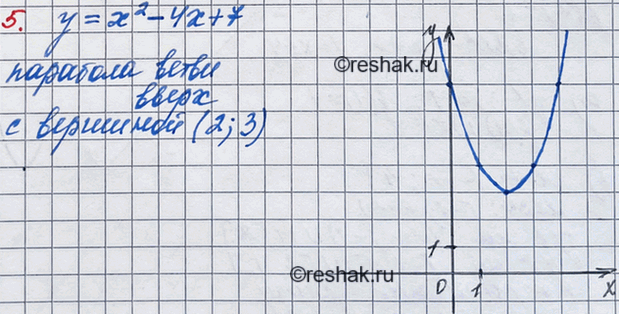 5. y = x² - 4x + 7
парабола ветви
вверх
с вершиной (2; 3)
y
©reshak.ru
1
©reshak.ru
0 1 x